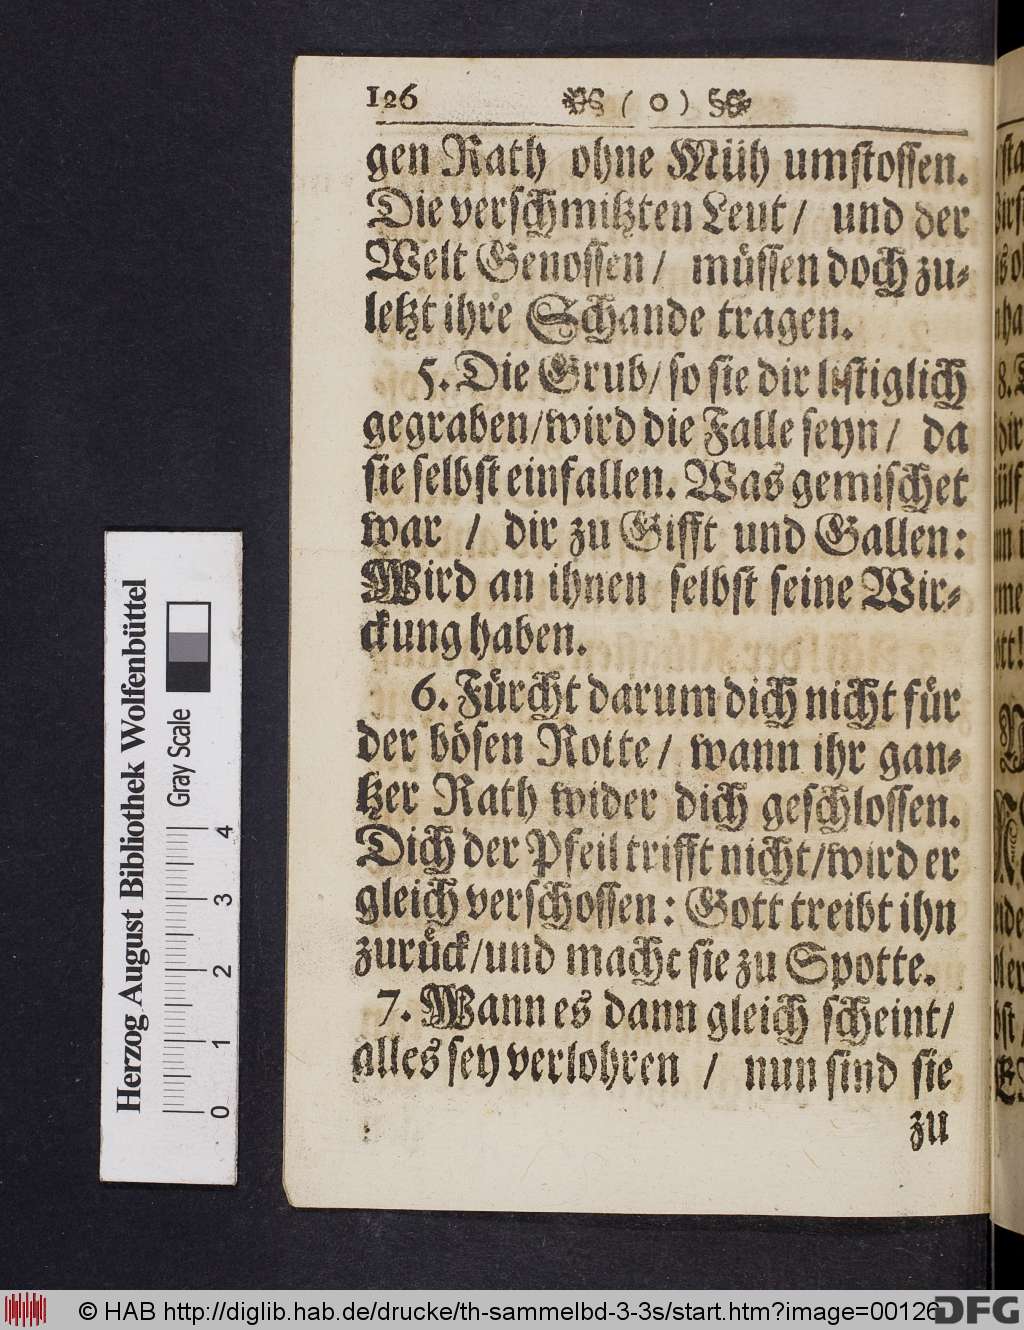 126 ( o )
gen Rath ohne Müh umstossen.
Die verschmitzten Leut / und der
Welt Genossen / müssen doch zu-
letzt ihre Schande tragen.
5. Die Grub / so sie dir listiglich
gegraben / wird die Falle seyn / da
sie selbst einfallen. Was gemischet
war / dir zu Gifft und Gallen:
Wird an ihnen selbst seine Wir-
ckung haben.
6. Fürcht darum dich nicht für
der bösen Rotte / wann ihr gan-
tzer Rath wider dich geschlossen.
Dich der Pfeil trifft nicht / wird er
gleich verschossen: Gott treibt ihn
zurück / und macht sie zu Spotte.
7. Wann es dann gleich scheint /
alles sey verlohren / nun sind sie
zu
Herzog August Bibliothek Wolfenbüttel
Gray Scale
0 1 2 3 4
© HAB http://diglib.hab.de/drucke/th-sammelbd-3-3s/start.htm?image=00126
DFG